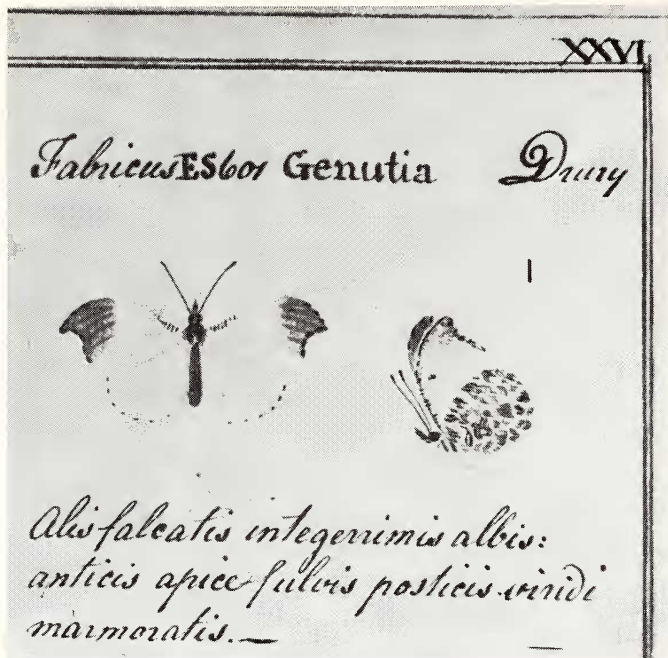 XXVI
Fabricus ES601 Genutia Drury
1
Alis falcatis integerrimis albis:
anticis apice fulvis posticis viridi
marmoratis.—